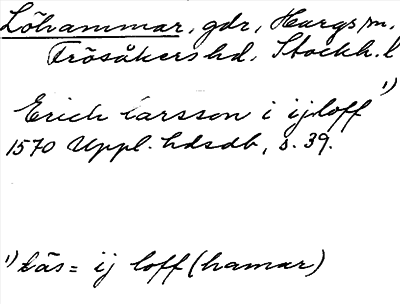 Löhammar, gdr, Hargs sn.
Frösåkers hd. Stockh. l
Erich Larsson i ijloff ¹)
1570 Uppl. hdsdb, s. 39.
¹) Läs = ij loff (hamar)